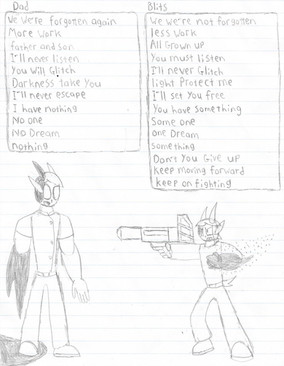 Dad
We We're forgotten again
More Work
father and son
I'll never listen
You Will Glitch
Darkness Take You
I'll never escape
I have nothing
No one
No Dream
nothing
Blits
We We're not forgotten
less Work
All Grown up
You must listen
I'll never Glitch
light Protect me
I'll set you free
You have something
Some one
one Dream
something
Don't You Give up
Keep moving forward
keep on fighting